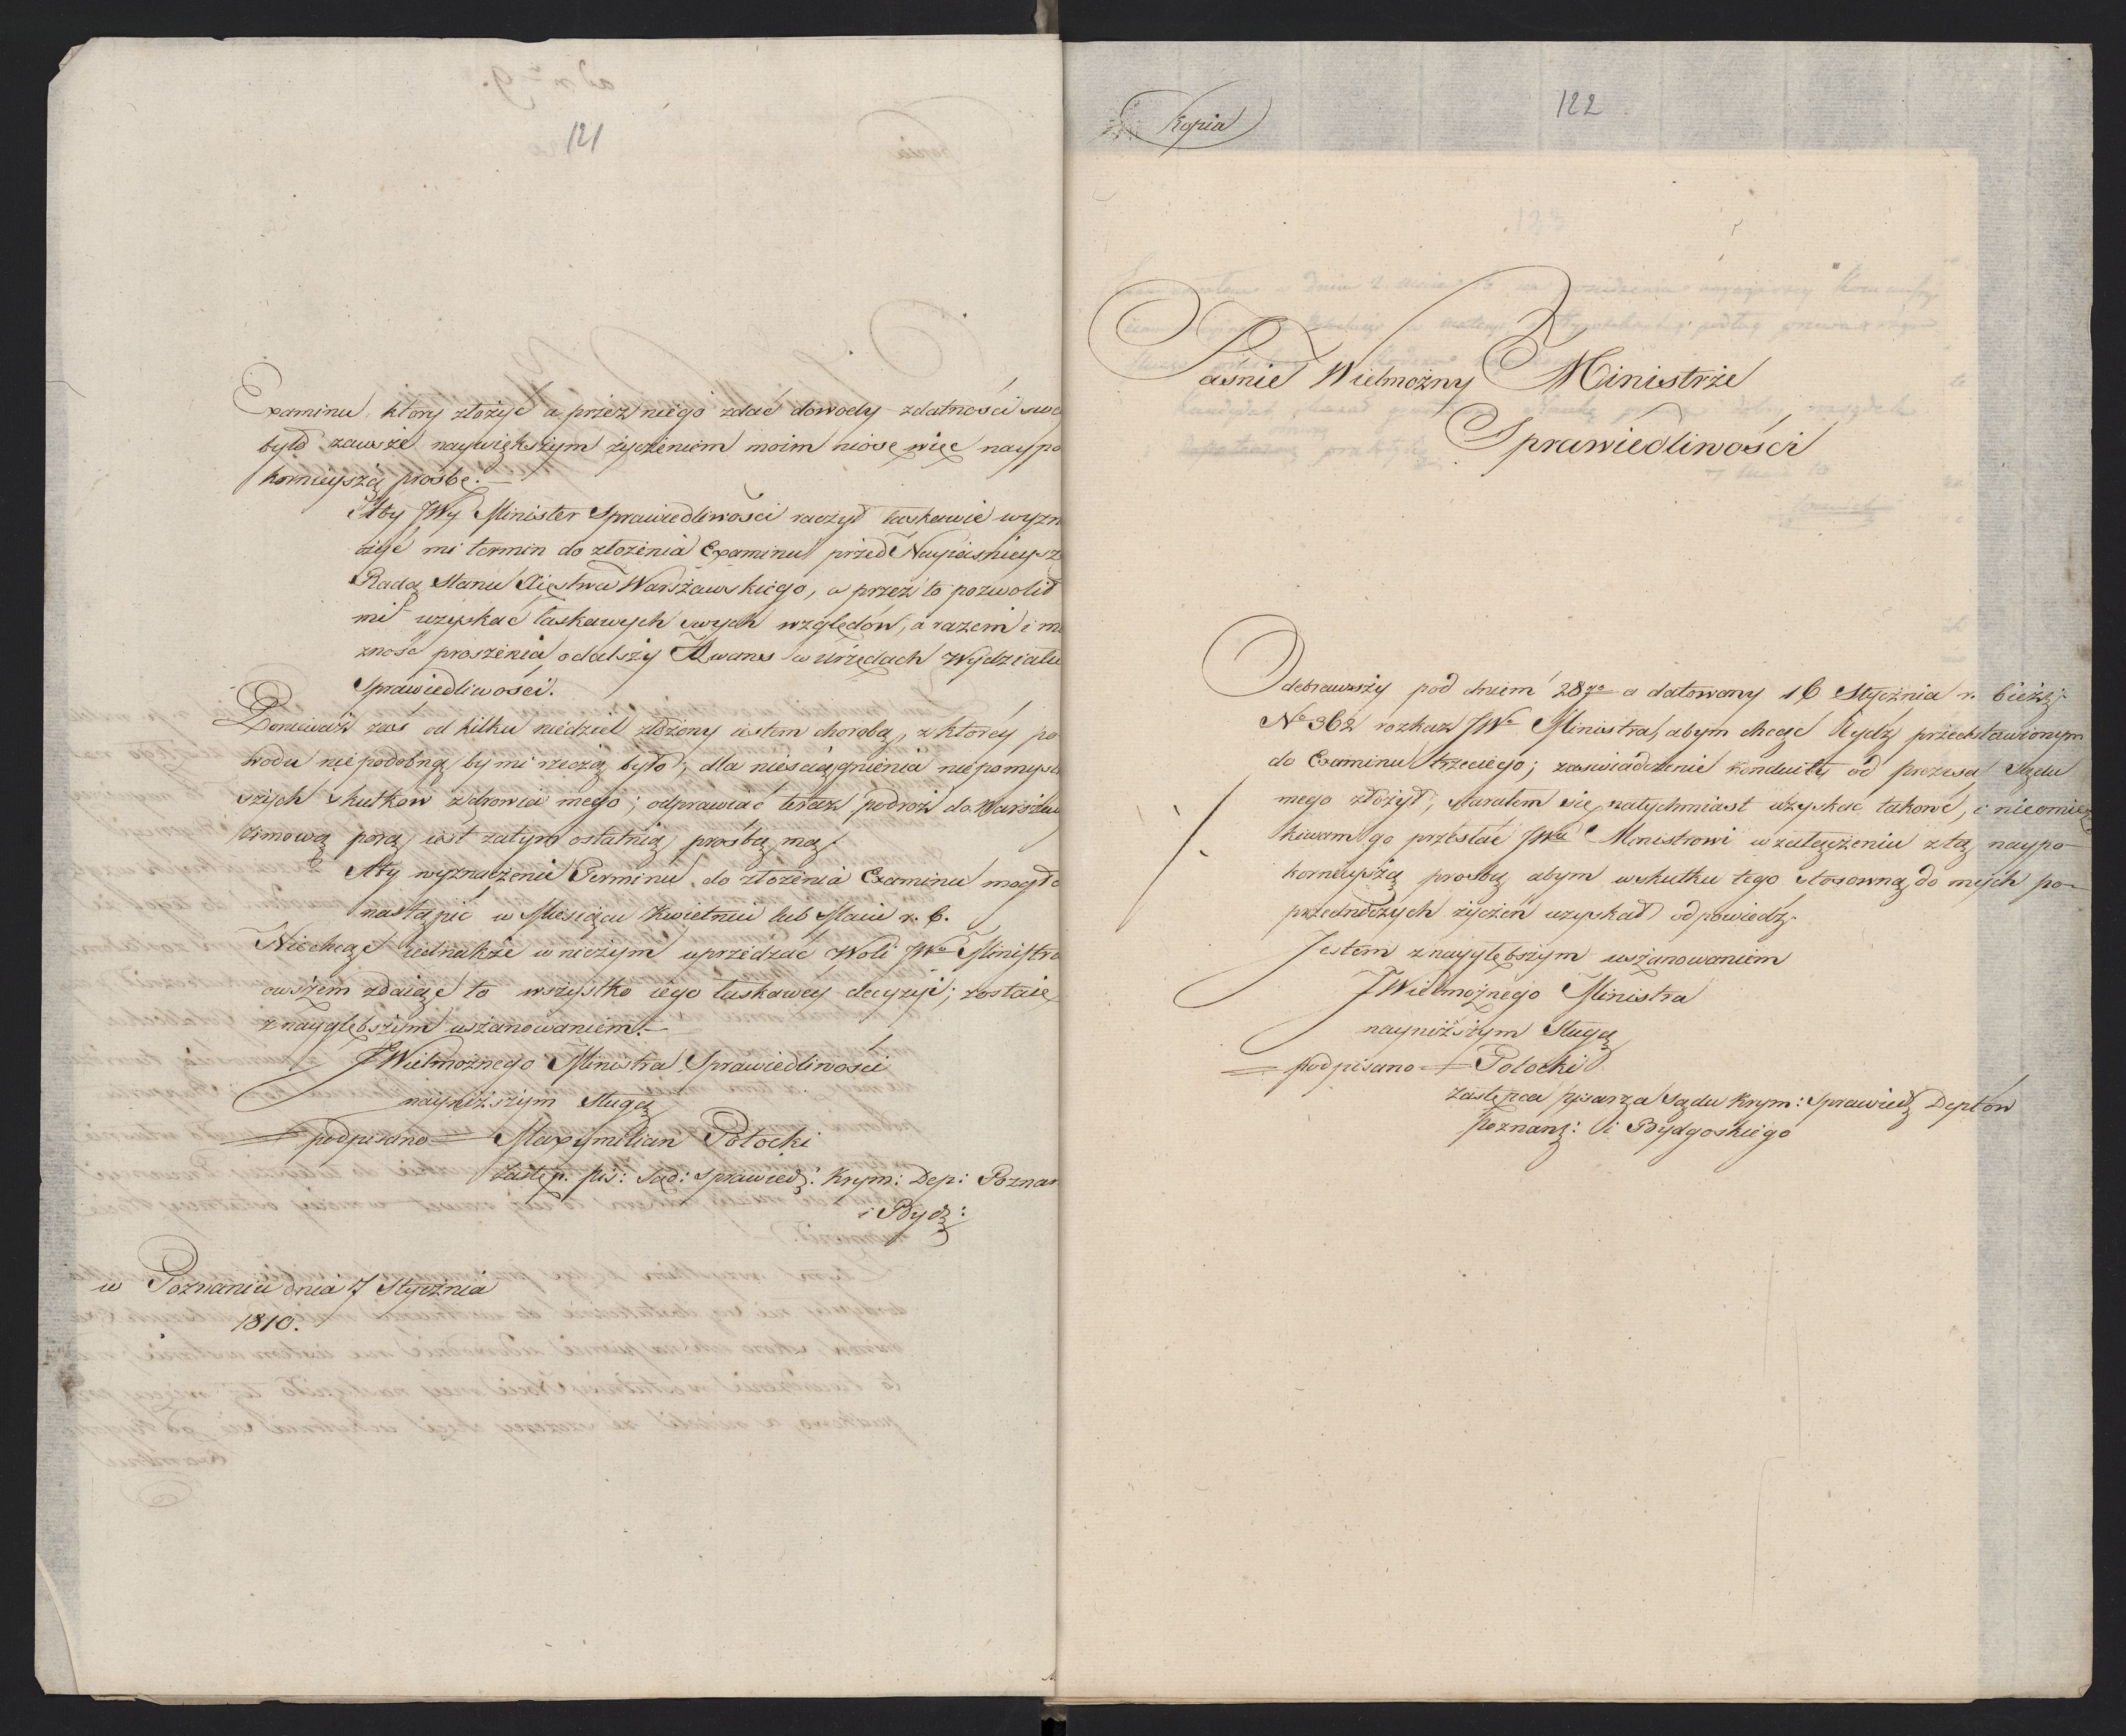 121
Examinu, ktory złożyć a przez niego zdać dowody zdatności swo
było zawsze naywiększym życzeniem moim niosę więc naypo
kornieyszą prośbę. —
Aby JWy Minister Sprawiedliwości raczył łaskawie wyzn
czyć mi termin do złożenia Examinu przed Nayiaśnieysz
Radą Stanu Xięstwa Warszawskiego, a przez to pozwolił
mi uzyskać łaskawych swych względów, a razem i mo
żność proszenia o dalszy Awans w Urzędach Wydziału
Sprawiedliwości.
Ponieważ zaś od kilku niedziel złożony iestem chorobą, z ktorey po
wodu niepodobną by mi rzeczą było, dla nieściągnienia niepomyśl
szych skutkow zdrowia mego; odprawiać teraz podroż do Warszaw
zimową porą, iest zatym ostatnią prośbą mą,
Aby wyznaczenie Terminu do złożenia Examinu mogło
nastąpić w Miesiącu Kwietniu lub Maiu r. b.
Niechcąc iednakże w niczym uprzedzać Woli JWo Ministra
owszem zdaiąc to wszystko iego łaskawey decyzyi; zostaię
z naygłębszym uszanowaniem. —
JWielmożnego Ministra Sprawiedliwości
nayniższym Sługą
= podpisano = Maxymilian Potocki
Zastęp. pis: Sąd: Sprawiedź: Krym: Dep: Poznań
i Bydź:
w Poznaniu dnia 7 Stycznia
1810.
Kopia
122
Jaśnie Wielmożny Ministrze
Sprawiedliwości
Odebrawszy pod dniem 28go a datowany 16 Stycznia r. bieżą:
No 362 rozkaz JWo Ministra, abym chcąc bydź przedstawionym
do Examinu trzeciego; zaswiadczenie konduity od prezesa Sądu
mego złożył, starałem się natychmiast uzyskać takowe, i nieomie
kiwam go przesłać JWu Ministrowi w załączeniu z tą naypo-
kornieyszą prośbą abym wskutku tego stosowną do mych po-
przedniczych życzeń uzyskał odpowiedź.
Jestem z naygłębszym uszanowaniem
JWielmożnego Ministra
nayniższym Sługą
= podpisano = Potocki
Zastępca pisarza Sądu Krym: Sprawiedź Deptów
Poznanź: i Bydgoskiego